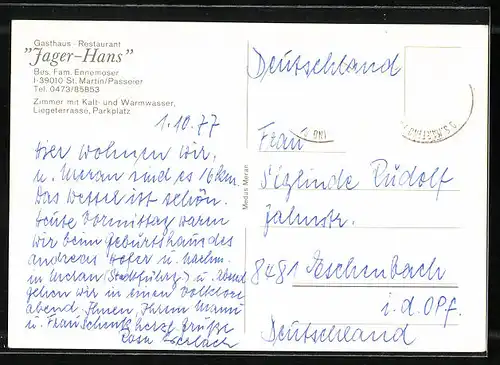 Gasthaus - Restaurant
"Jager-Hans"
Bes. Fam. Ennemoser
I-39010 St. Martin/Passeier
Tel. 0473/85853
Zimmer mit Kalt- und Warmwasser,
Liegeterrasse, Parkplatz
1.10.77
Hier wohnen wir,
u. Meran sind es 16 km.
Das Wetter ist schön.
Heute Vormittag waren
wir beim Geburtshaus des
Andreas Hofer u. nachm.
in Meran (Stadtführg) u. Abend
gehen wir in einen Volklore
abend. Ihnen, Ihrem Mann
u. Frau Schenk herzl. Grüße
Rosa
Medus Meran
Deutschland
Frau
Siglinde Rudolf
Jahnstr.
8481 Eschenbach
i. d. OPf.
Deutschland